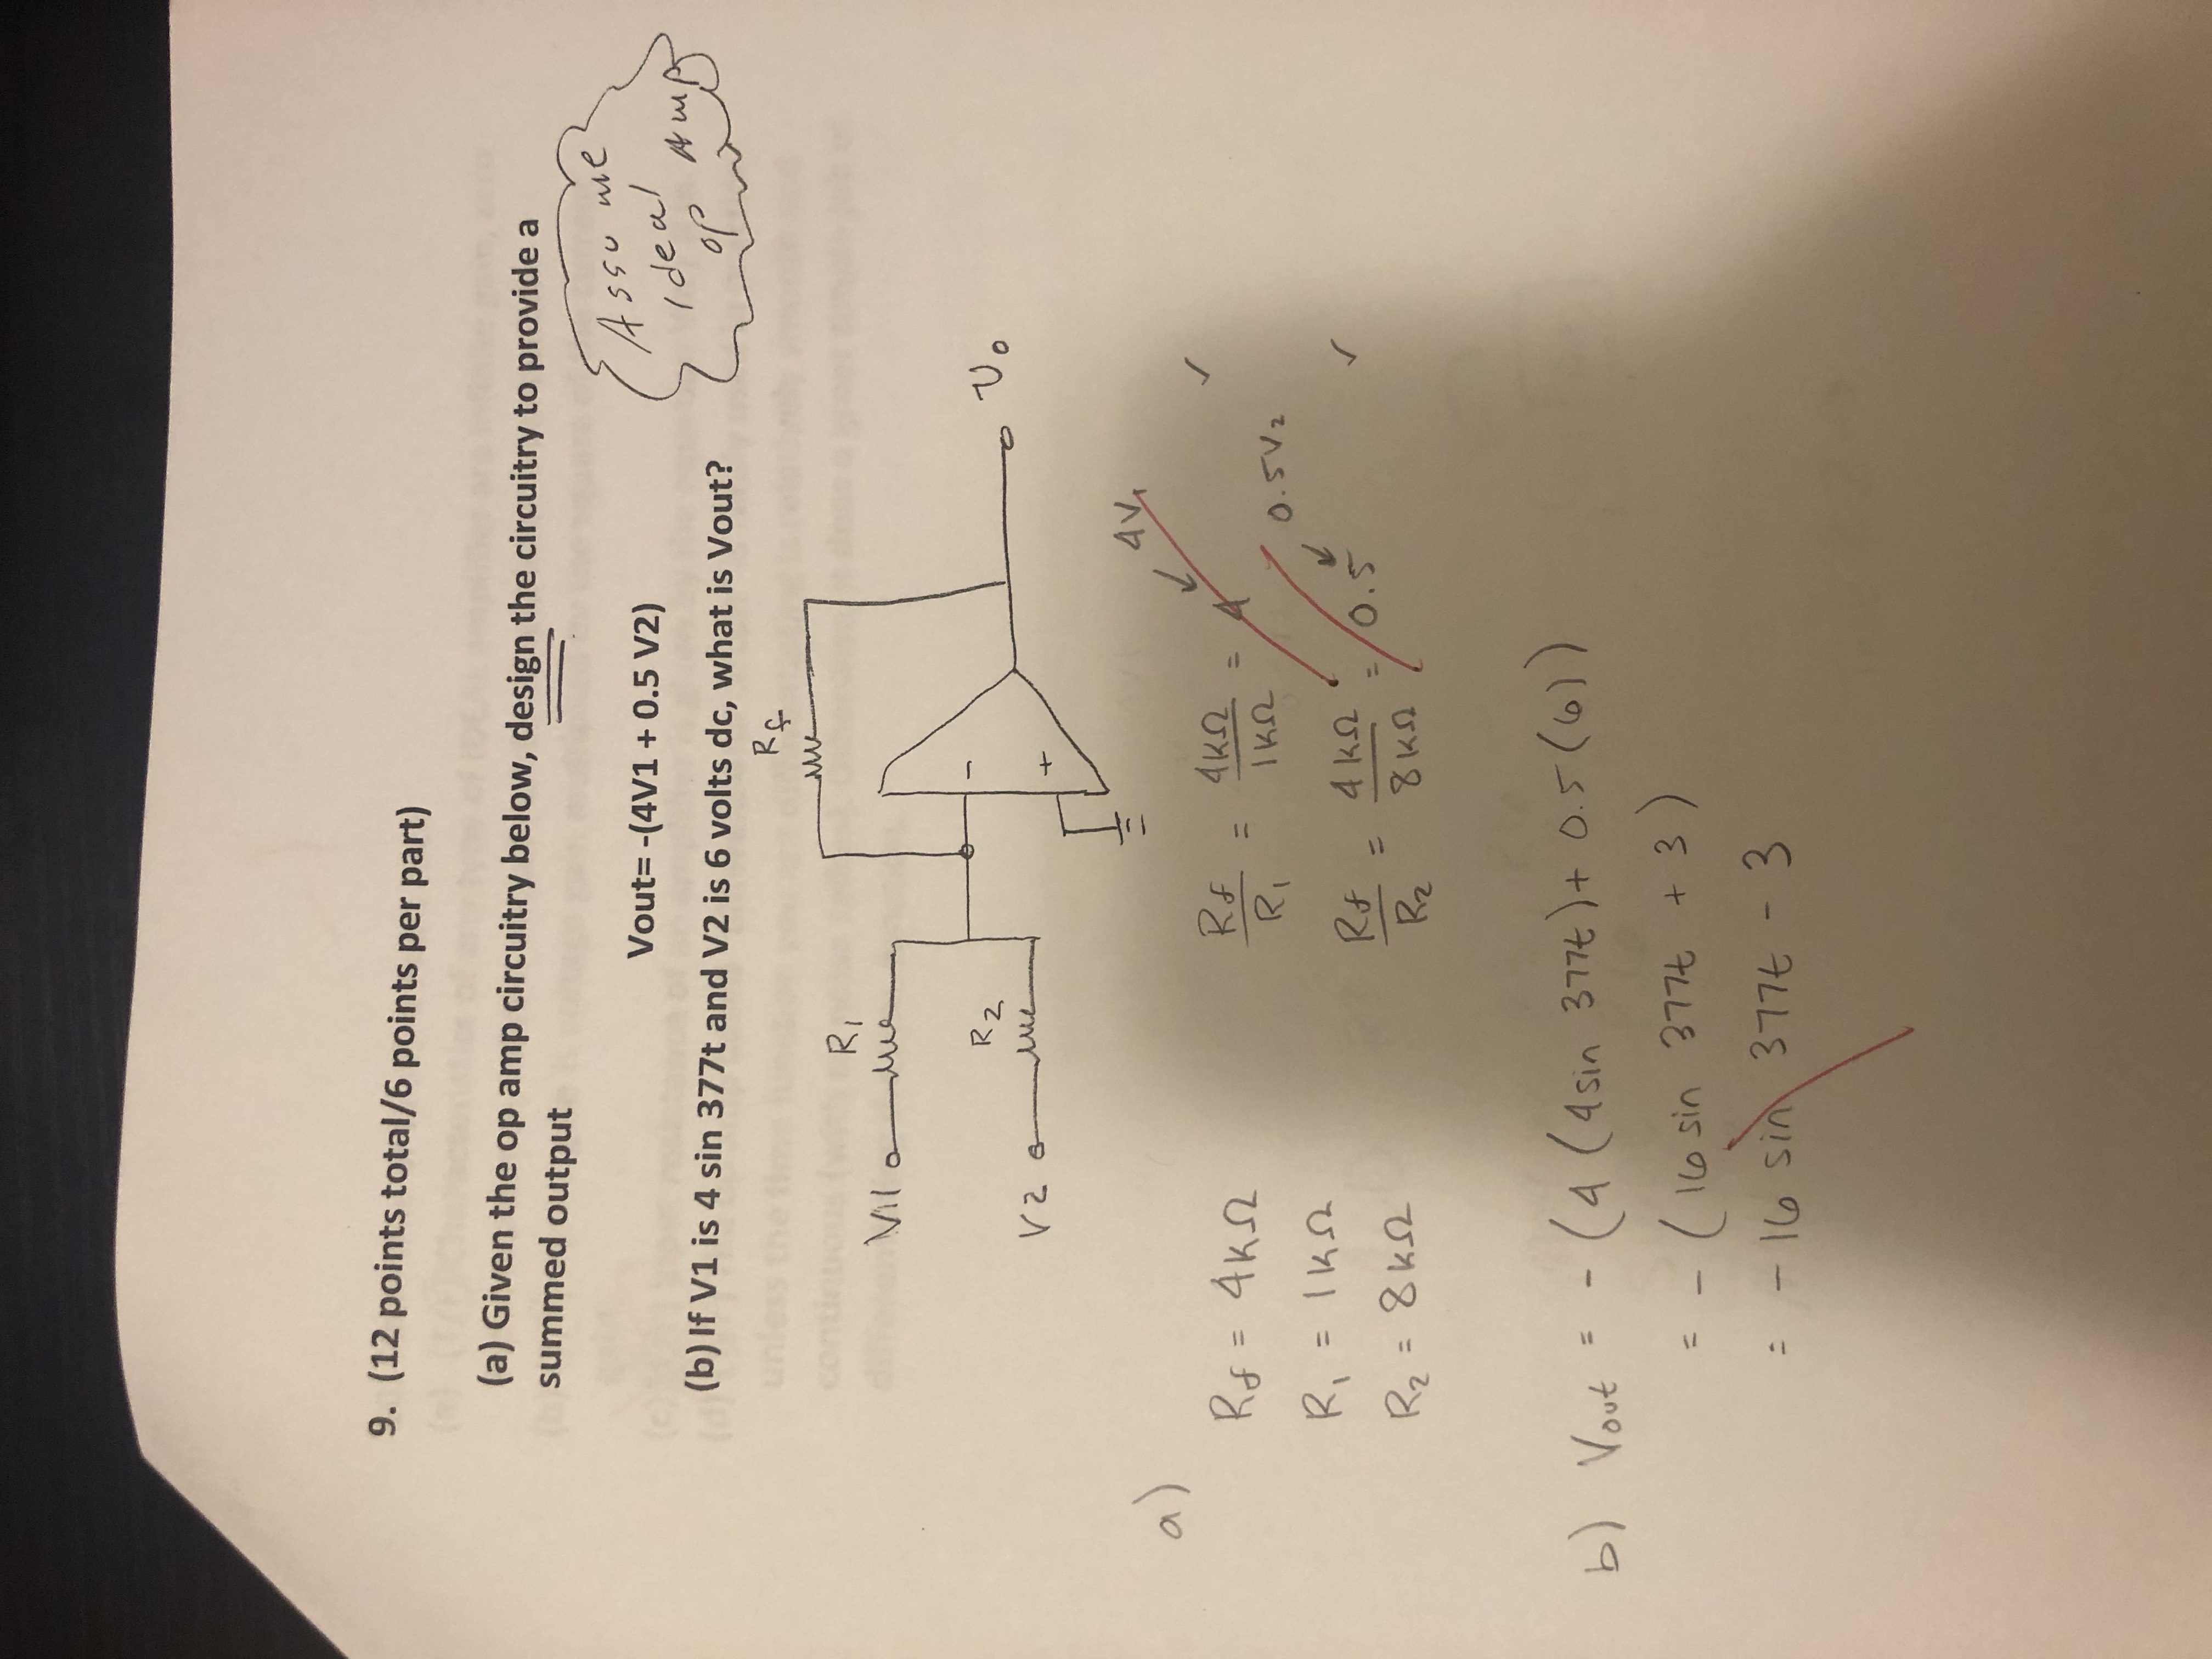 9. (12 points total/6 points per part)
(a) Given the op amp circuitry below, design the circuitry to provide a
summed output
Vout= -(4V1 + 0.5 V2)
Assume
Ideal
op Amp
(b) If V1 is 4 sin 377t and V2 is 6 volts dc, what is Vout?
Rf
R1
V11
-
R2
V2
+
Vo
a)
4V1
Rf = 4kΩ
Rf/R1 = 4kΩ/1kΩ = 4 ✓
0.5V2
R1 = 1kΩ
Rf/R2 = 4kΩ/8kΩ = 0.5 ✓
R2 = 8kΩ
b) Vout = - (4 (4sin 377t) + 0.5 (6))
= - (16 sin 377t + 3)
= - 16 sin 377t - 3